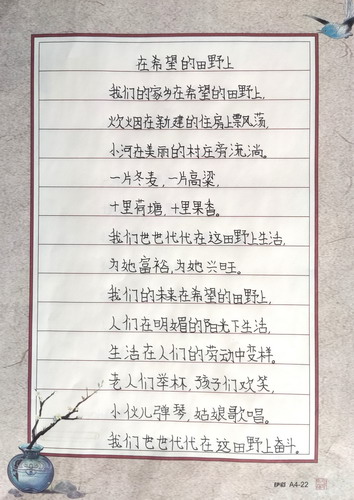 在希望的田野上
我们的家乡在希望的田野上,
炊烟在新建的住房上飘荡,
小河在美丽的村庄旁流淌。
一片冬麦,一片高粱,
十里荷塘,十里果香。
我们世世代代在这田野上生活,
为她富裕,为她兴旺。
我们的未来在希望的田野上,
人们在明媚的阳光下生活,
生活在人们的劳动中变样。
老人们举杯,孩子们欢笑,
小伙儿弹琴,姑娘歌唱。
我们世世代代在这田野上奋斗。
A4-22